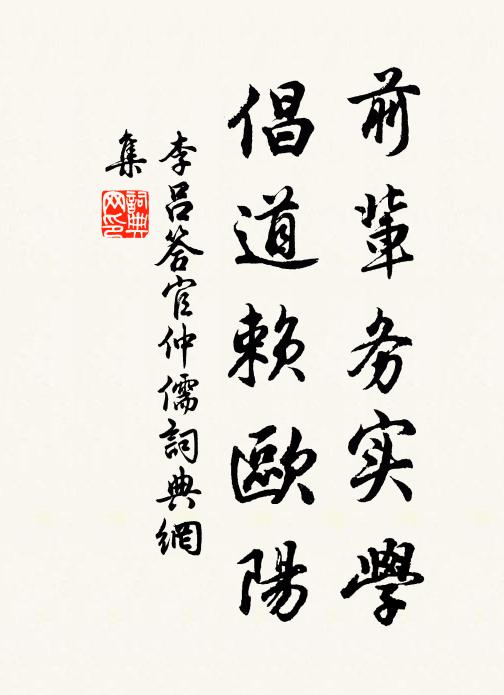 前輩务实學
倡道赖歐陽
李吕答官仲儒詞典網
集
詞典
网印